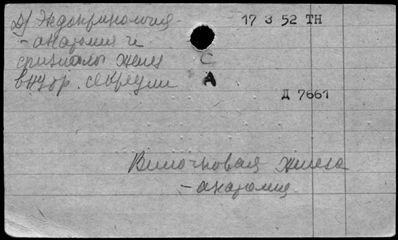 Д) Эндокринология -
17 3 52 ТН
- анатомия и
физиолог желез
С
внутр. секреции
А
Д 7661
Вилочковая железа
- анатомия